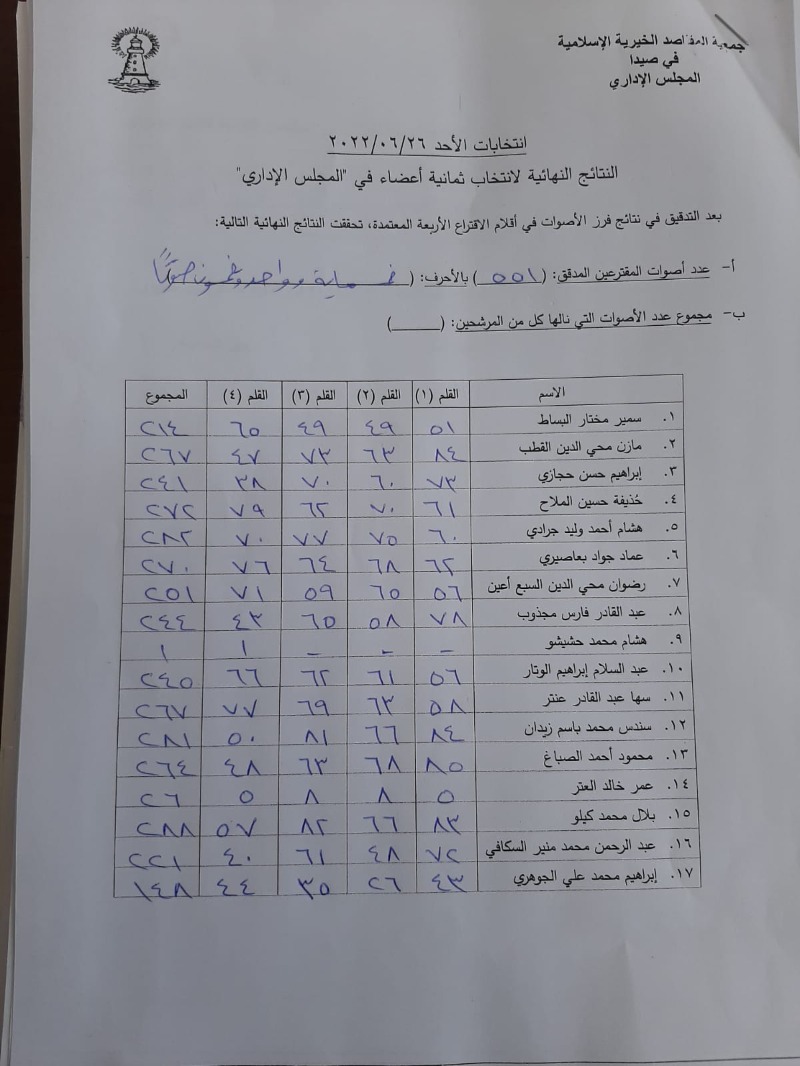 جمعية المقاصد الخيرية الإسلامية
في صيدا
المجلس الإداري
انتخابات الأحد ٢٠٢٢/٠٦/٢٦
النتائج النهائية لانتخاب ثمانية أعضاء في "المجلس الإداري"
بعد التدقيق في نتائج فرز الأصوات في أقلام الاقتراع الأربعة المعتمدة، تحققت النتائج النهائية التالية:
أ- عدد أصوات المقترعين المدقق: (٥٥١) بالأحرف: (خمسماية وواحد وخمسون صوتاً
ب- مجموع عدد الأصوات التي نالها كل من المرشحين: (_____)
الاسم القلم (١) القلم (٢) القلم (٣) القلم (٤) المجموع
١. سمير مختار البساط ٥١ ٤٩ ٤٩ ٦٥ ٢١٤
٢. مازن محي الدين القطب ٨٤ ٦٣ ٧٣ ٤٧ ٢٦٧
٣. إبراهيم حسن حجازي ٧٣ ٦٠ ٧٠ ٣٨ ٢٤١
٤. حُذيفة حسين الملاح ٦١ ٧٠ ٦٢ ٧٩ ٢٧٢
٥. هشام أحمد وليد جرادي ٦٠ ٧٥ ٧٧ ٧٠ ٢٨٢
٦. عماد جواد بعاصيري ٦٢ ٦٨ ٦٤ ٧٦ ٢٧٠
٧. رضوان محي الدين السبع أعين ٥٦ ٦٥ ٥٩ ٧١ ٢٥١
٨. عبد القادر فارس مجذوب ٧٨ ٥٨ ٦٥ ٤٣ ٢٤٤
٩. هشام محمد حشيشو - - - ١ ١
١٠. عبد السلام إبراهيم الوتار ٥٦ ٦١ ٦٢ ٦٦ ٢٤٥
١١. سها عبد القادر عنتر ٥٨ ٦٣ ٦٩ ٧٧ ٢٦٧
١٢. سندس محمد باسم زيدان ٨٤ ٦٦ ٨١ ٥٠ ٢٨١
١٣. محمود أحمد الصباغ ٨٥ ٦٨ ٦٣ ٤٨ ٢٦٤
١٤. عمر خالد العتر ٥ ٨ ٨ ٥ ٢٦
١٥. بلال محمد كيلو ٨٣ ٦٦ ٨٢ ٥٧ ٢٨٨
١٦. عبد الرحمن محمد منير السكافي ٧٢ ٤٨ ٦١ ٤٠ ٢٢١
١٧. إبراهيم محمد علي الجوهري ٤٣ ٢٦ ٣٥ ٤٤ ١٤٨